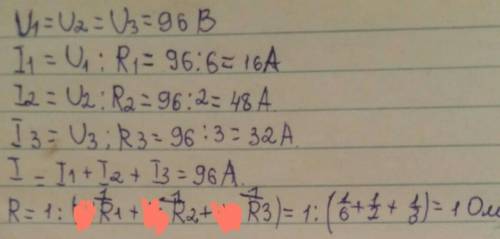 U1=U2=U3=96 В
I1=U1:R1=96:6=16А
I2=U2:R2=96:2=48А
I3=U3:R3=96:3=32А.
I=I1+I2+I3=96А.
R=1:(1/R1+1/R2+1/R3)=1:(1/6+1/2+1/3)=1 Ом